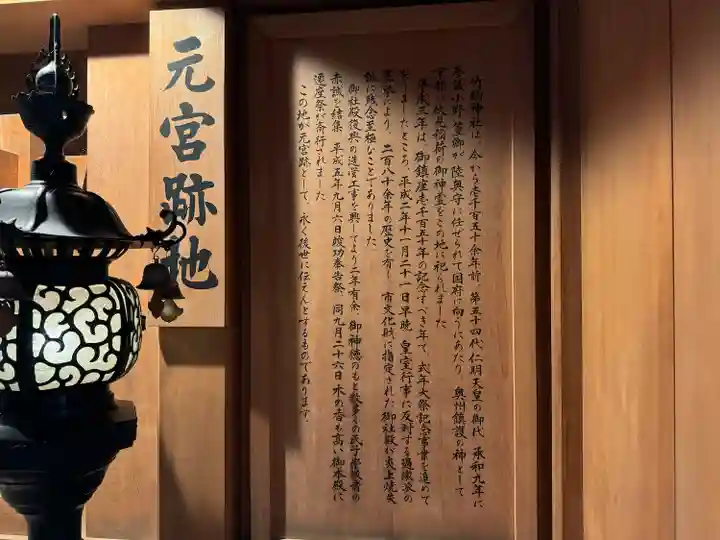 元宮跡地
竹駒神社は、今から壱千百五十余年前、第五十四代仁明天皇の御代 承和九年に
参議小野篁卿が陸奥守に任ぜられて国府に向うにあたり 奥州鎮護の神として
京都・伏見稲荷の御神霊をこの地に祀られました
平成三年は、御鎮座壱千百五十年の記念すべき年で、式年大祭記念事業を進めて
をりましたところ、平成二年十一月二十一日早暁 皇室行事に反対する過激派の
により、二百八十余年の歴史を有し 市文化財に指定された御社殿が炎上焼失
誠に残念至極なことでありました
御社殿復興の造営工事を興してより二年有余、御神徳のもと数多くの氏子崇敬者の
赤誠を結集 平成五年九月六日竣功奉告祭、同九月二十六日木の香も高い御本殿に
遷座祭が斎行されました
この地が元宮跡として、永く後世に伝えんとするものであります、